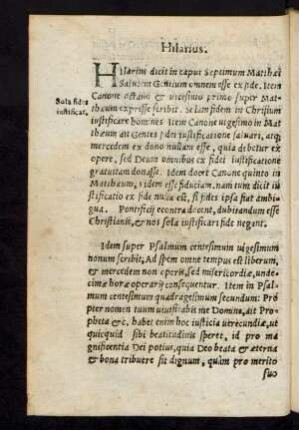 Hilarius.
HIlarius dicit in caput Septimum Matthæi
Salutem Gentium omnem esse ex fide. Item
Canone octauo & uicesimo primo super Mat-
Sola fides
iustificat.
thæum expresse scribit. Solam fidem in Christum
iustificare homines Item Canone uigesimo in Mat
thæum ait Gentes fidei iustificatione saluari, atq;
mercedem ex dono nullam esse, quia debetur ex
opere, sed Deum omnibus ex fidei iustificatione
gratuitam donasse. Idem docet Canone quinto in
Matthæum, ibidem esse fiduciam, nam tum dicit iu
stificatio ex fide nulla est, si fides ipsa fiat ambi
gua. Pontificij econtra docent, dubitandum esse
Christianis, & nos sola iustificari fide negant.
Idem super Psalmum centesimum uigesimum
nonum scribit, Ad spem omne tempus est liberum,
& mercedem non operis, sed misericordiæ, unde-
cimæ horæ operarij consequentur. Item in Psal
mum centesimum quadragesimum secundum: Pro
pter nomen tuum uiuificabis me Domine, ait Pro-
pheta &c. habet enim hoc iusticia uerecundiæ, ut
quicquid sibi beatitudinis speret, id pro ma
gnificentia Dei potius, quia Deo beata & æterna
& bona tribuere sit dignum, quàm pro merito
suo